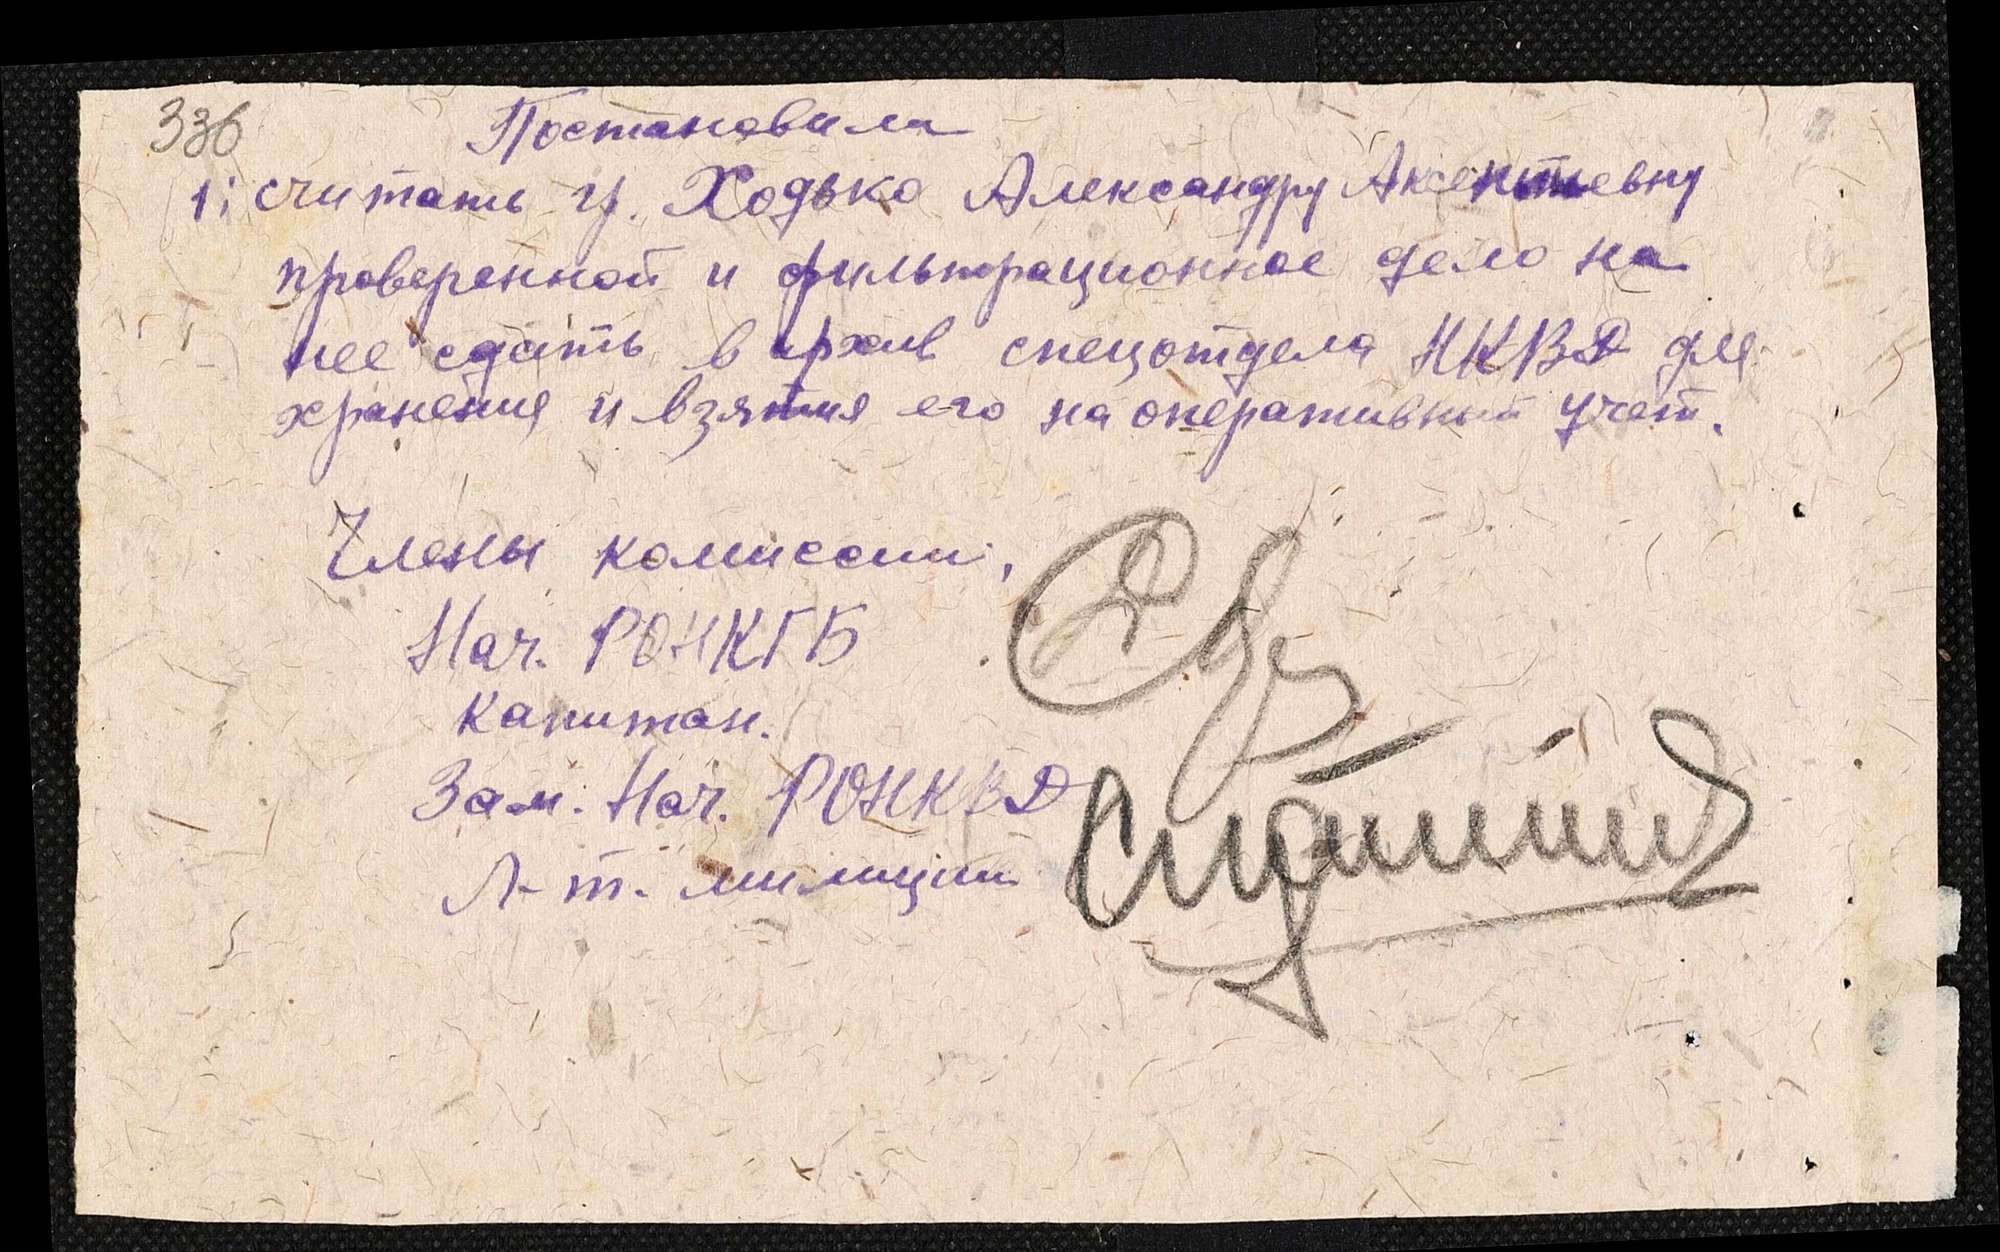 336
Постановила
1; считать гр. Ходько Александру Аксентьевну
проверенной и фильтрационное дело на
нее сдать в архив спецотдела НКВД для
хранения и взятия его на оперативный учет.
Члены комиссии,
Нач. РОНКГБ
Капитан.
Зам. Нач. РОНКВД
Л-т. милиции